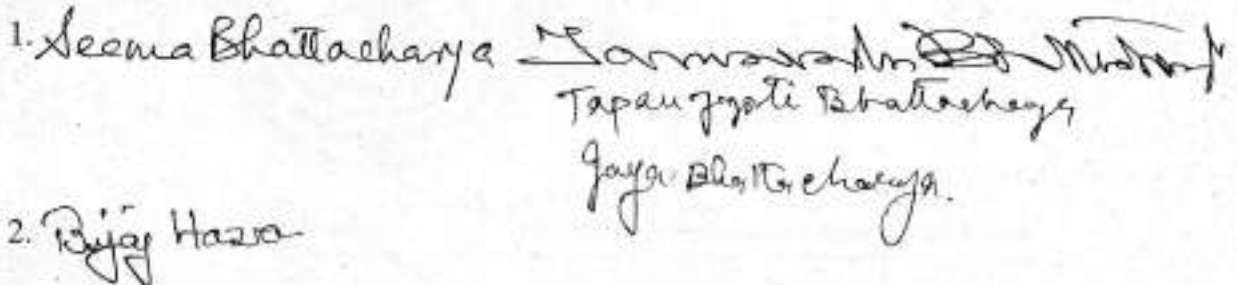 1. Seema Bhattacharya
Tapan Jyoti Bhattacharya
Jaya Bhattacharya.
2. Bijoy Hazra